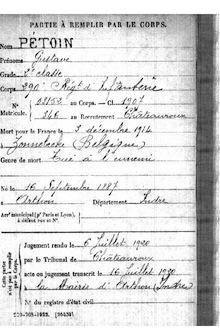 PARTIE À REMPLIR PAR LE CORPS.
Nom PÉTOIN
Prénoms Gustave
Grade 2e classe
Corps 290e Régt d'Infanterie
N° 03153 au Corps. — Cl. 1907
Matricule. 346 au Recrutement Châteauroux
Mort pour la France le 3 décembre 1914
à Zonnebecke (Belgique)
Genre de mort Tué à l'ennemi
Né le 16 Septembre 1887
à Arthon Département Indre
Arrt municipal (pr Paris et Lyon),
à défaut rue et N°.
Cette partie
n'est pas à remplir
par le Corps.
Jugement rendu le 6 Juillet 1920
par le Tribunal de Châteauroux
acte ou jugement transcrit le 16 Juillet 1920
à la Mairie d'Arthon (Indre)
N° du registre d'état civil